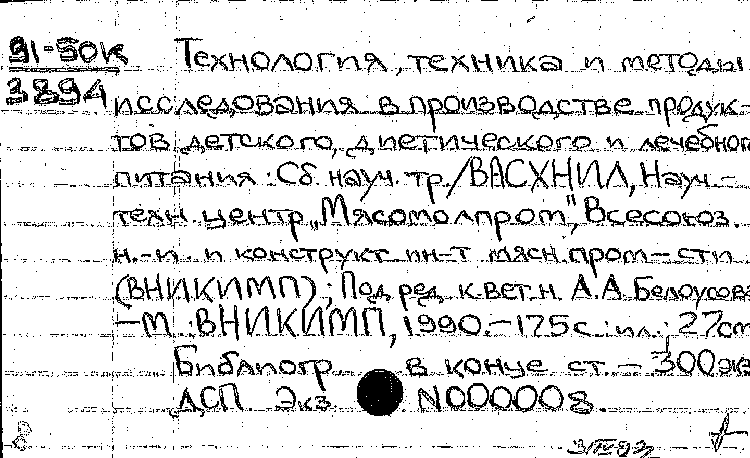 91-50к Технология, техника и методы
3894 исследования в производстве продук-
тов детского, диетического и лечебного
питания: Сб. науч. тр./ВАСХНИЛ, Науч.-
техн. центр „Мясомолпром“, Всесоюз.
н.-и. и конструкт. ин-т мясн. пром-сти
(ВНИКИМП); Под ред. к.вет.н. А.А. Белоусова
—М.: ВНИКИМП, 1990.—175 с.: ил.; 27 см
Библиогр. в конце ст. — 300 экз
ДСП Экз. N000008.